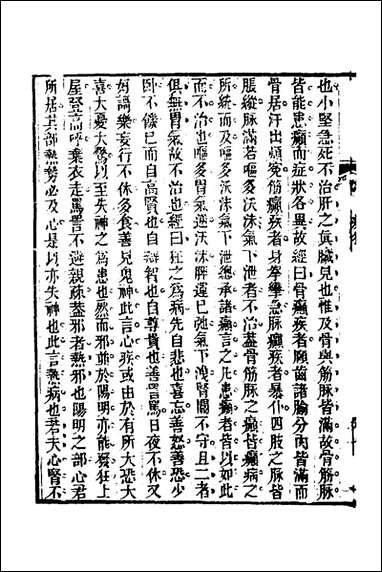 也小堅急死不治肝之真臟見也惟及骨與筋脉皆滿故骨筋脉
皆能患癲而症狀各異故經曰骨癲疾者顑齒諸腧分肉皆滿而
骨居汗出煩寃筋癲疾者身拳攣急脉癲疾者暴仆四肢之脉皆
脹縱脉滿若嘔多沃沫氣下泄者不治蓋骨筋脉之癲皆癲病之
所統而及嘔多沃沫氣下泄總承諸癲言之凡患癲者皆以如此
而不治也嘔多胃氣逆沃沫脾運已弛氣下洩腎關不守且二者
俱無胃氣故不治也經曰狂之為病先自悲也喜忘善怒善恐少
卧不饑已而自高賢也自辯智也自尊貴也善言罵日夜不休又
好謌樂妄行不休多食善見鬼神此言心疾或由於有所大恐大
喜大憂大驚以至失神之為患也然而邪並於陽明亦能發狂上
屋登高呼棄衣走罵詈不避親疏蓋邪者熱邪也陽明之部心君
所居其部熱勢必及心是以亦失神也此言熱病也君夫心腎不